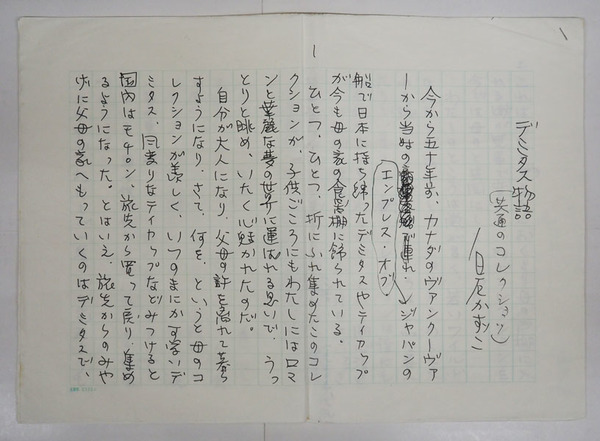 デミタス物語
(共通のコレクション)
白石かずこ
今から五十年前、カナダのヴァンクーヴァ
ーから当時の で連れ、ジャパンの
エンプレス・オブ
船で日本に持ち帰ったデミタスやティカップ
が今も母の家の食器棚に飾られている。
ひとつ、ひとつ、折にふれ集めたこのコレ
クションが、子供ごころにもわたしにはロマ
ンと華麗な夢の世界に運ばれる思いで、うっ
とりと眺め、いたく心魅かれたのだ。
自分が大人になり、父母の許を離れて暮ら
すようになり、さて、何を、というと母のコ
レクションが羨しく、いつのまにか可愛いデ
ミタス、風変りなティカップなどみつけると
国内はモチロン、旅先から買って戻り、集め
るようになった。とはいえ、旅先からのみや
げに父母の家へもっていくのはデミタスで、
1